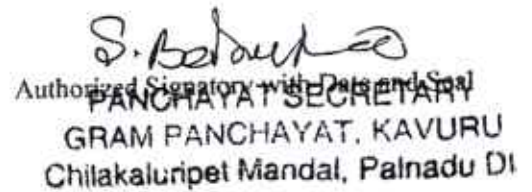 S.
Authorized Signatory with Date and Seal
PANCHAYAT SECRETARY
GRAM PANCHAYAT, KAVURU
Chilakaluripet Mandal, Palnadu Di